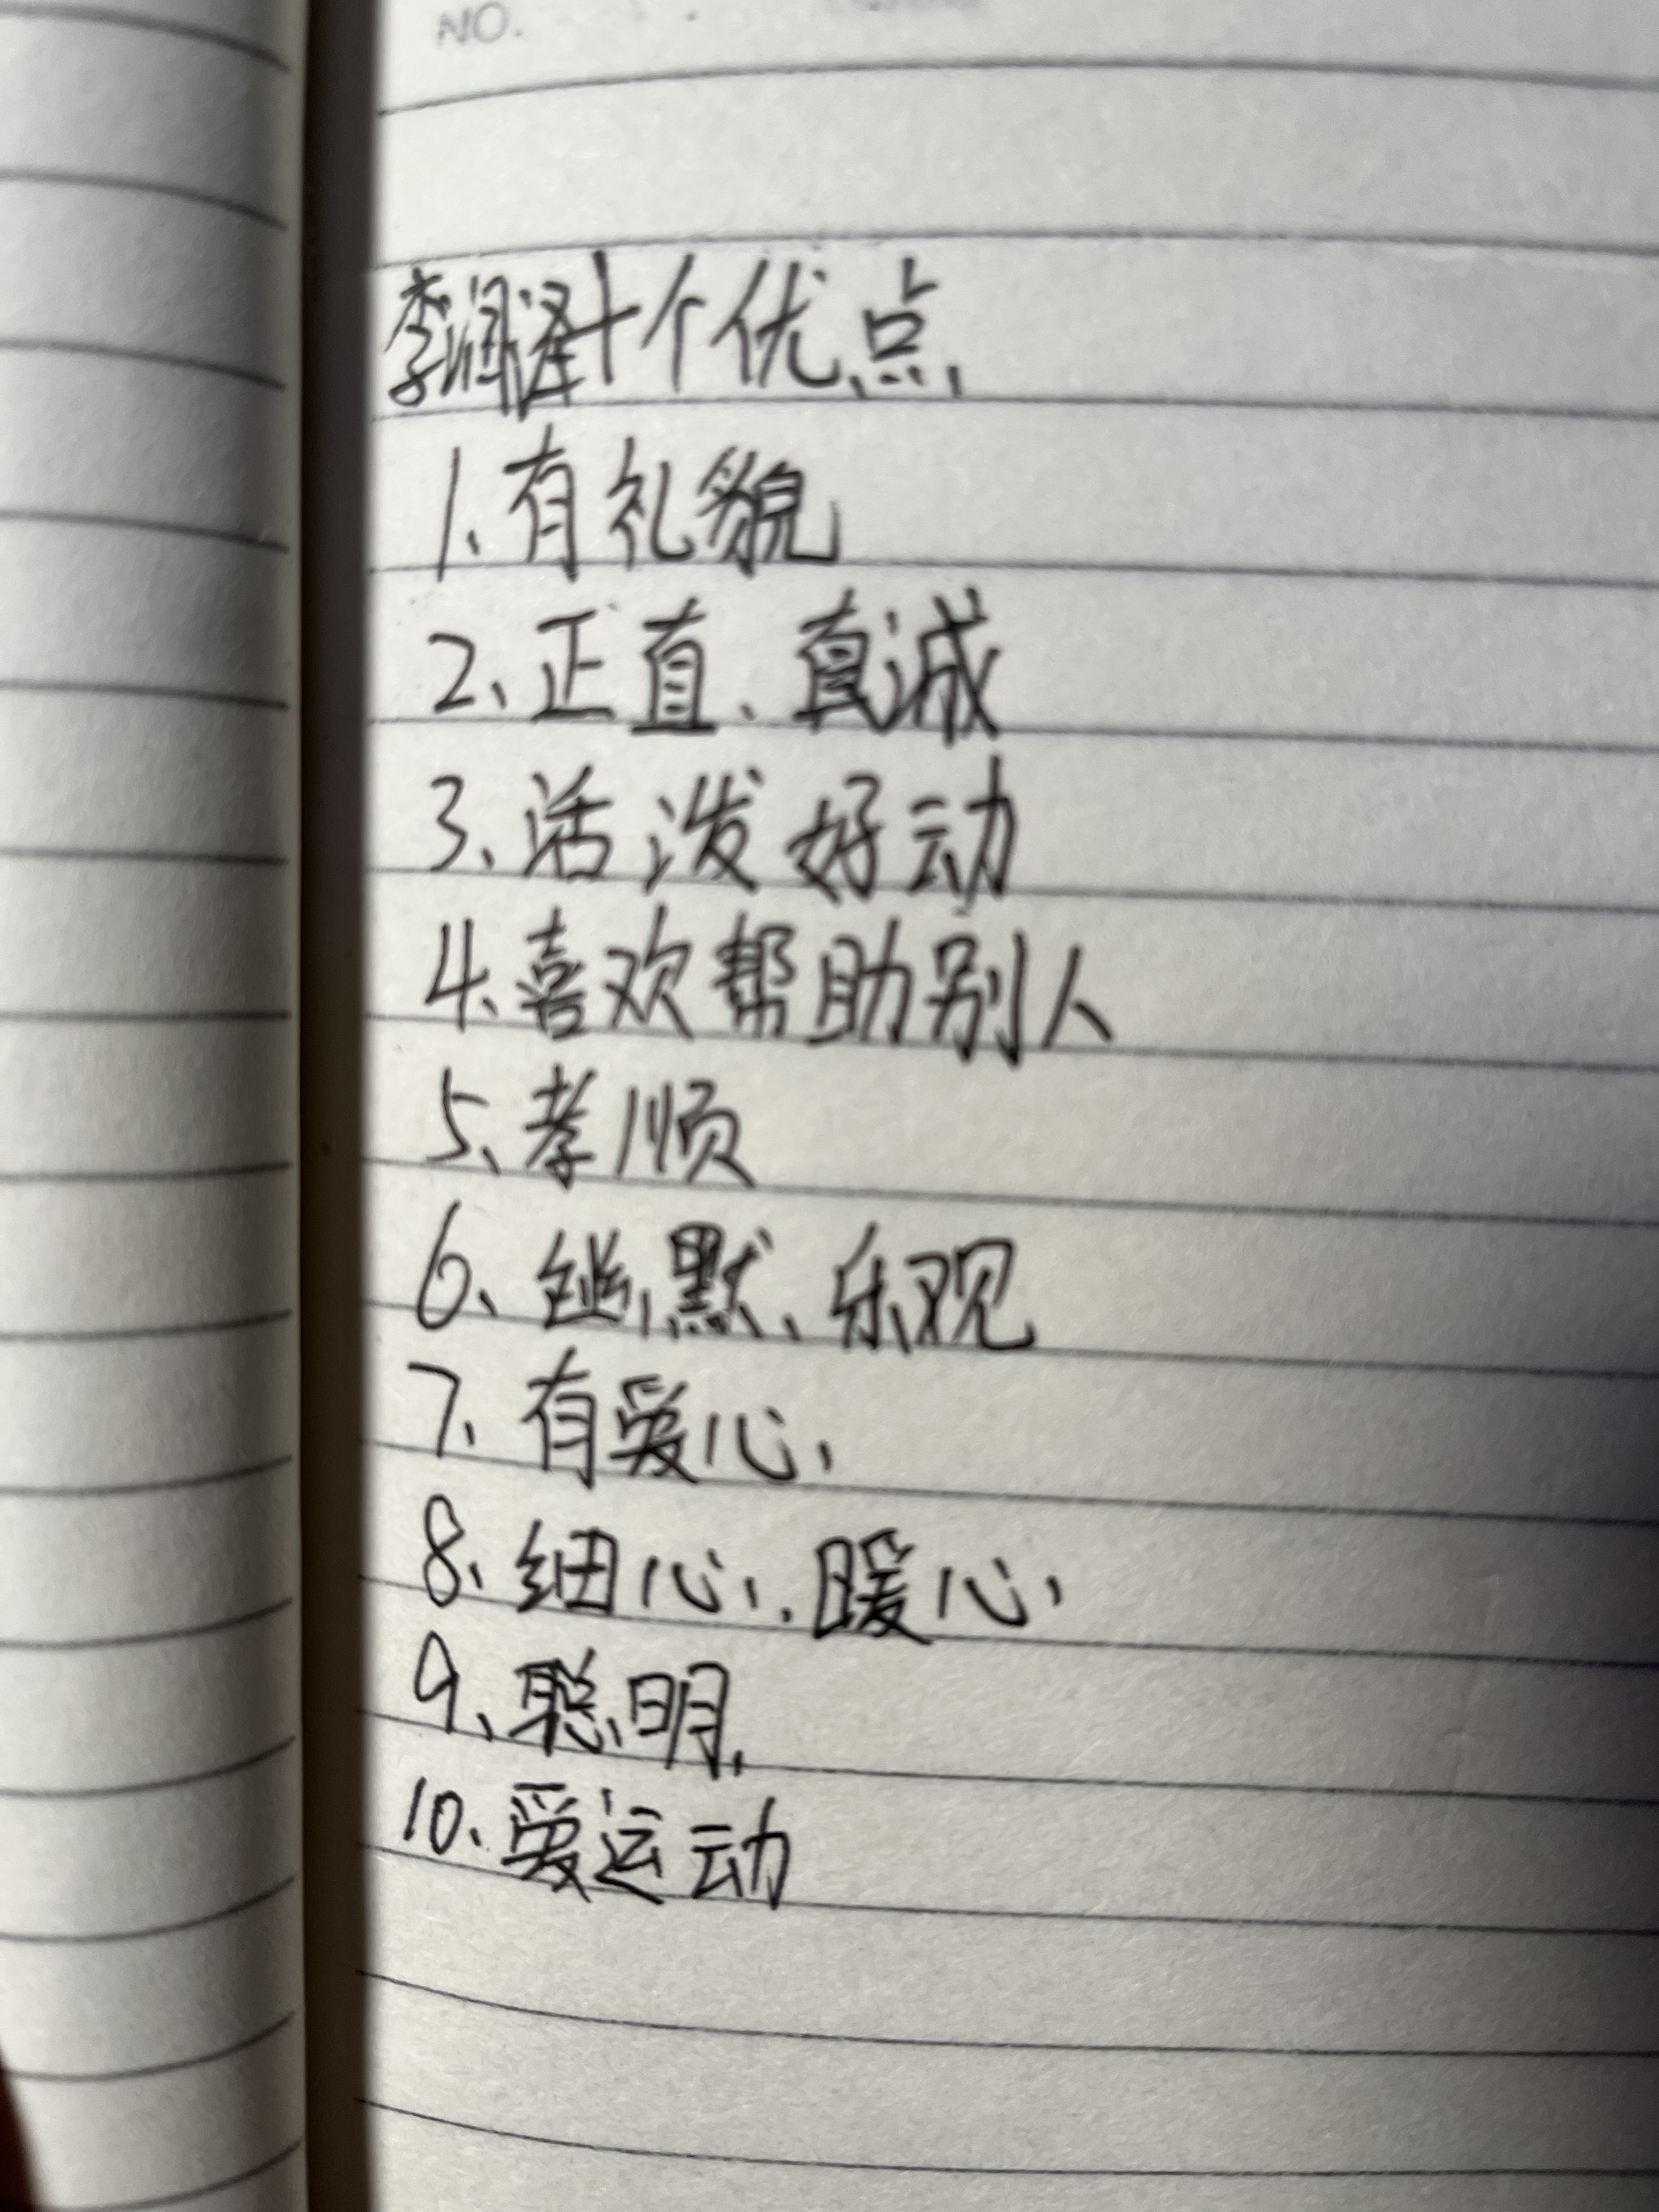 NO.
李润泽十个优点
1、有礼貌
2、正直、真诚
3、活泼好动
4、喜欢帮助别人
5、孝顺
6、幽默、乐观
7、有爱心
8、细心、暖心
9、聪明
10、爱运动